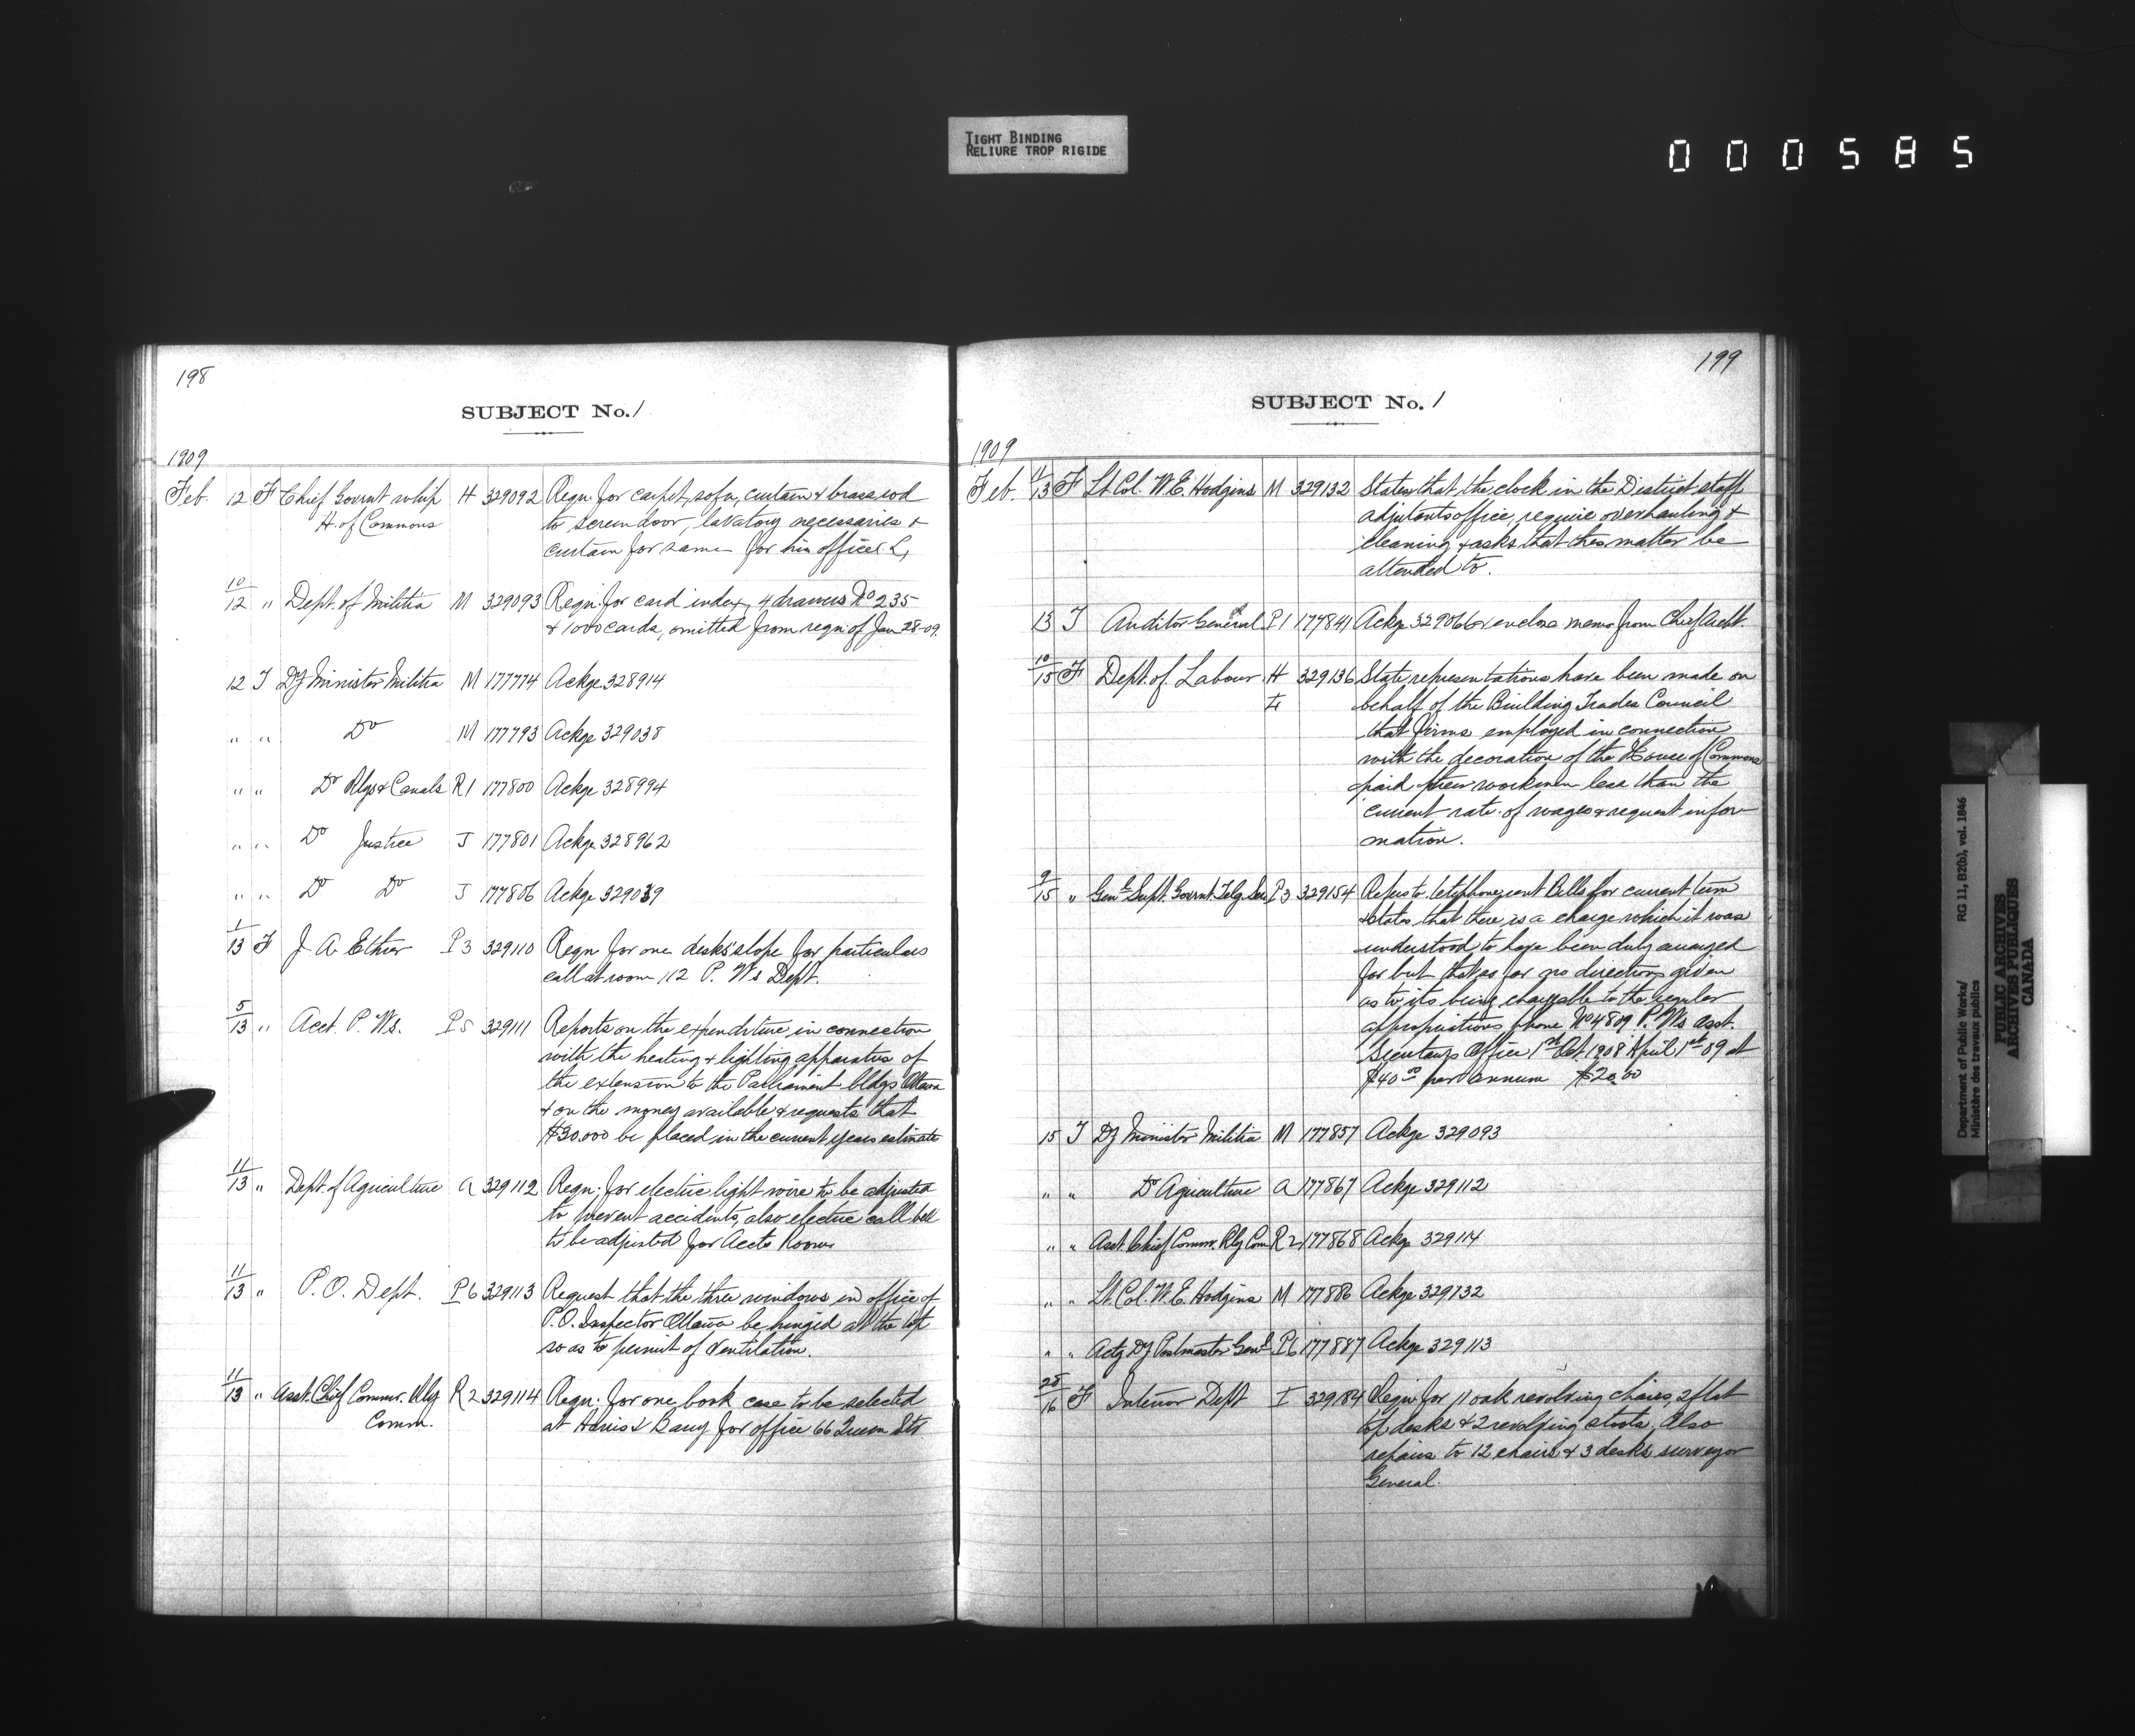 TIGHT BINDING
RELIURE TROP RIGIDE
000585
198
SUBJECT No. 1
1909
Feb. 12 F Chief Govrnt whip H 329092 Reqn. for carpet, sofa, curtain & brass rod
H. of Commons to screen door, lavatory necessaries &
curtain for same for his office
10/12 " Dept. of Militia M 329093 Reqn. for card index, 4 drawers No 235
& 1000 cards, omitted from reqn. of Jan 28-09.
12 T Dy Minister Militia M 177774 Ackge 328914
" " Do M 177793 Ackge 329038
" " Do Rlys & Canals R1 177800 Ackge 328994
" " Do Justice J 177801 Ackge 328962
" " Do Do J 177806 Ackge 329039
1/13 F J. A. Ethier P3 329110 Reqn for one desk slope for particulars
call at room 112 P. Ws Dept.
5/13 " Acct. P. Ws. P5 329111 Reports on the expenditure in connection
with the heating & lighting apparatus of
the extension to the Parliament bldgs Ottawa
& on the money available & requests that
$30.000 be placed in the current years estimate
11/13 " Dept. of Agriculture A 329112 Reqn. for electric light wire to be adjusted
to prevent accidents, also electric call bell
to be adjusted for Accts Room
11/13 " P. O. Dept. P6 329113 Request that the three windows in office of
P.O. Inspector Ottawa be hinged at the top
so as to permit of ventilation.
11/13 " Asst. Chief Commr. Rly R2 329114 Reqn. for one book case to be selected
Comm. at Harris & for office 66 Queen Str
199
SUBJECT No. 1
1909
Feb. 11/13 F Lt. Col. W. E. Hodgins M 329132 States that the clock in the District staff
adjutants office, require overhauling &
cleaning & asks that this matter be
attended to.
13 T Auditor General P1 177841 Ackge 329066 & enclose memo from Chief Archt.
10/15 F Dept. of Labour H 329136 State representations have been made on
behalf of the Building Trades Council
that firms employed in connection
with the decoration of the House of Commons
paid their workmen less than the
current rate of wages & request infor
mation.
9/15 " Genl Supt. Govrnt. Telg. Ser. P3 329154 Refers to telephone rent Bills for current term
& states that there is a charge which it was
understood to have been duly arranged
for but that as far no directions given
as to its being chargeable to the regular
appropriations phone No 4809 P. Ws asst.
Secretarys Office 1st Oct. 1908 April 1st 09 at
$40.00 per annum $20.00
15 T Dy Minister Militia M 177857 Ackge 329093
" " Do Agriculture A 177867 Ackge 329112
" " Asst. Chief Commr. Rly Com R2 177868 Ackge 329114
" " Lt. Col. W. E. Hodgins M 177886 Ackge 329132
" " Actg Dy Postmaster Genl P6 177887 Ackge 329113
16 F Interior Dept I 329184 Reqn. for 11 oak revolving chairs, 2 flat
top desks & 2 revolving stools, Also
repairs to 12 chairs & 3 desks surveyor
General.
Department of Public Works/ RG 11, B2(b), vol. 1846
Ministère des travaux publics
PUBLIC ARCHIVES
ARCHIVES PUBLIQUES
CANADA